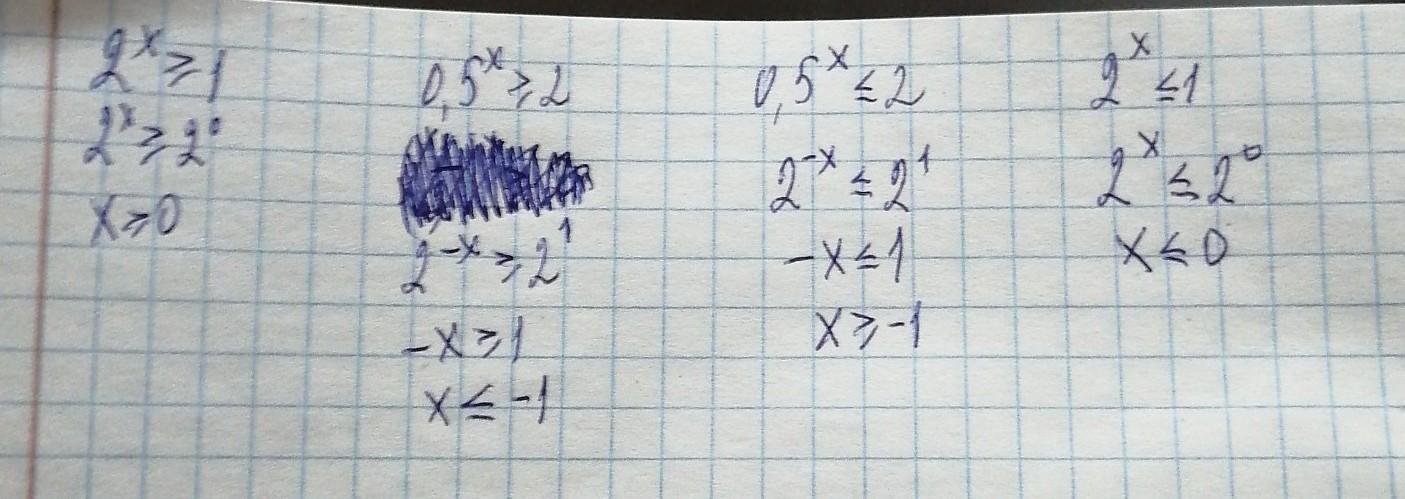 2^x ⩾ 1
2^x ⩾ 2^0
x ⩾ 0
0,5^x ⩾ 2
2^-x ⩾ 2^1
-x ⩾ 1
x ≤ -1
0,5^x ≤ 2
2^-x ≤ 2^1
-x ≤ 1
x ⩾ -1
2^x ≤ 1
2^x ≤ 2^0
x ≤ 0